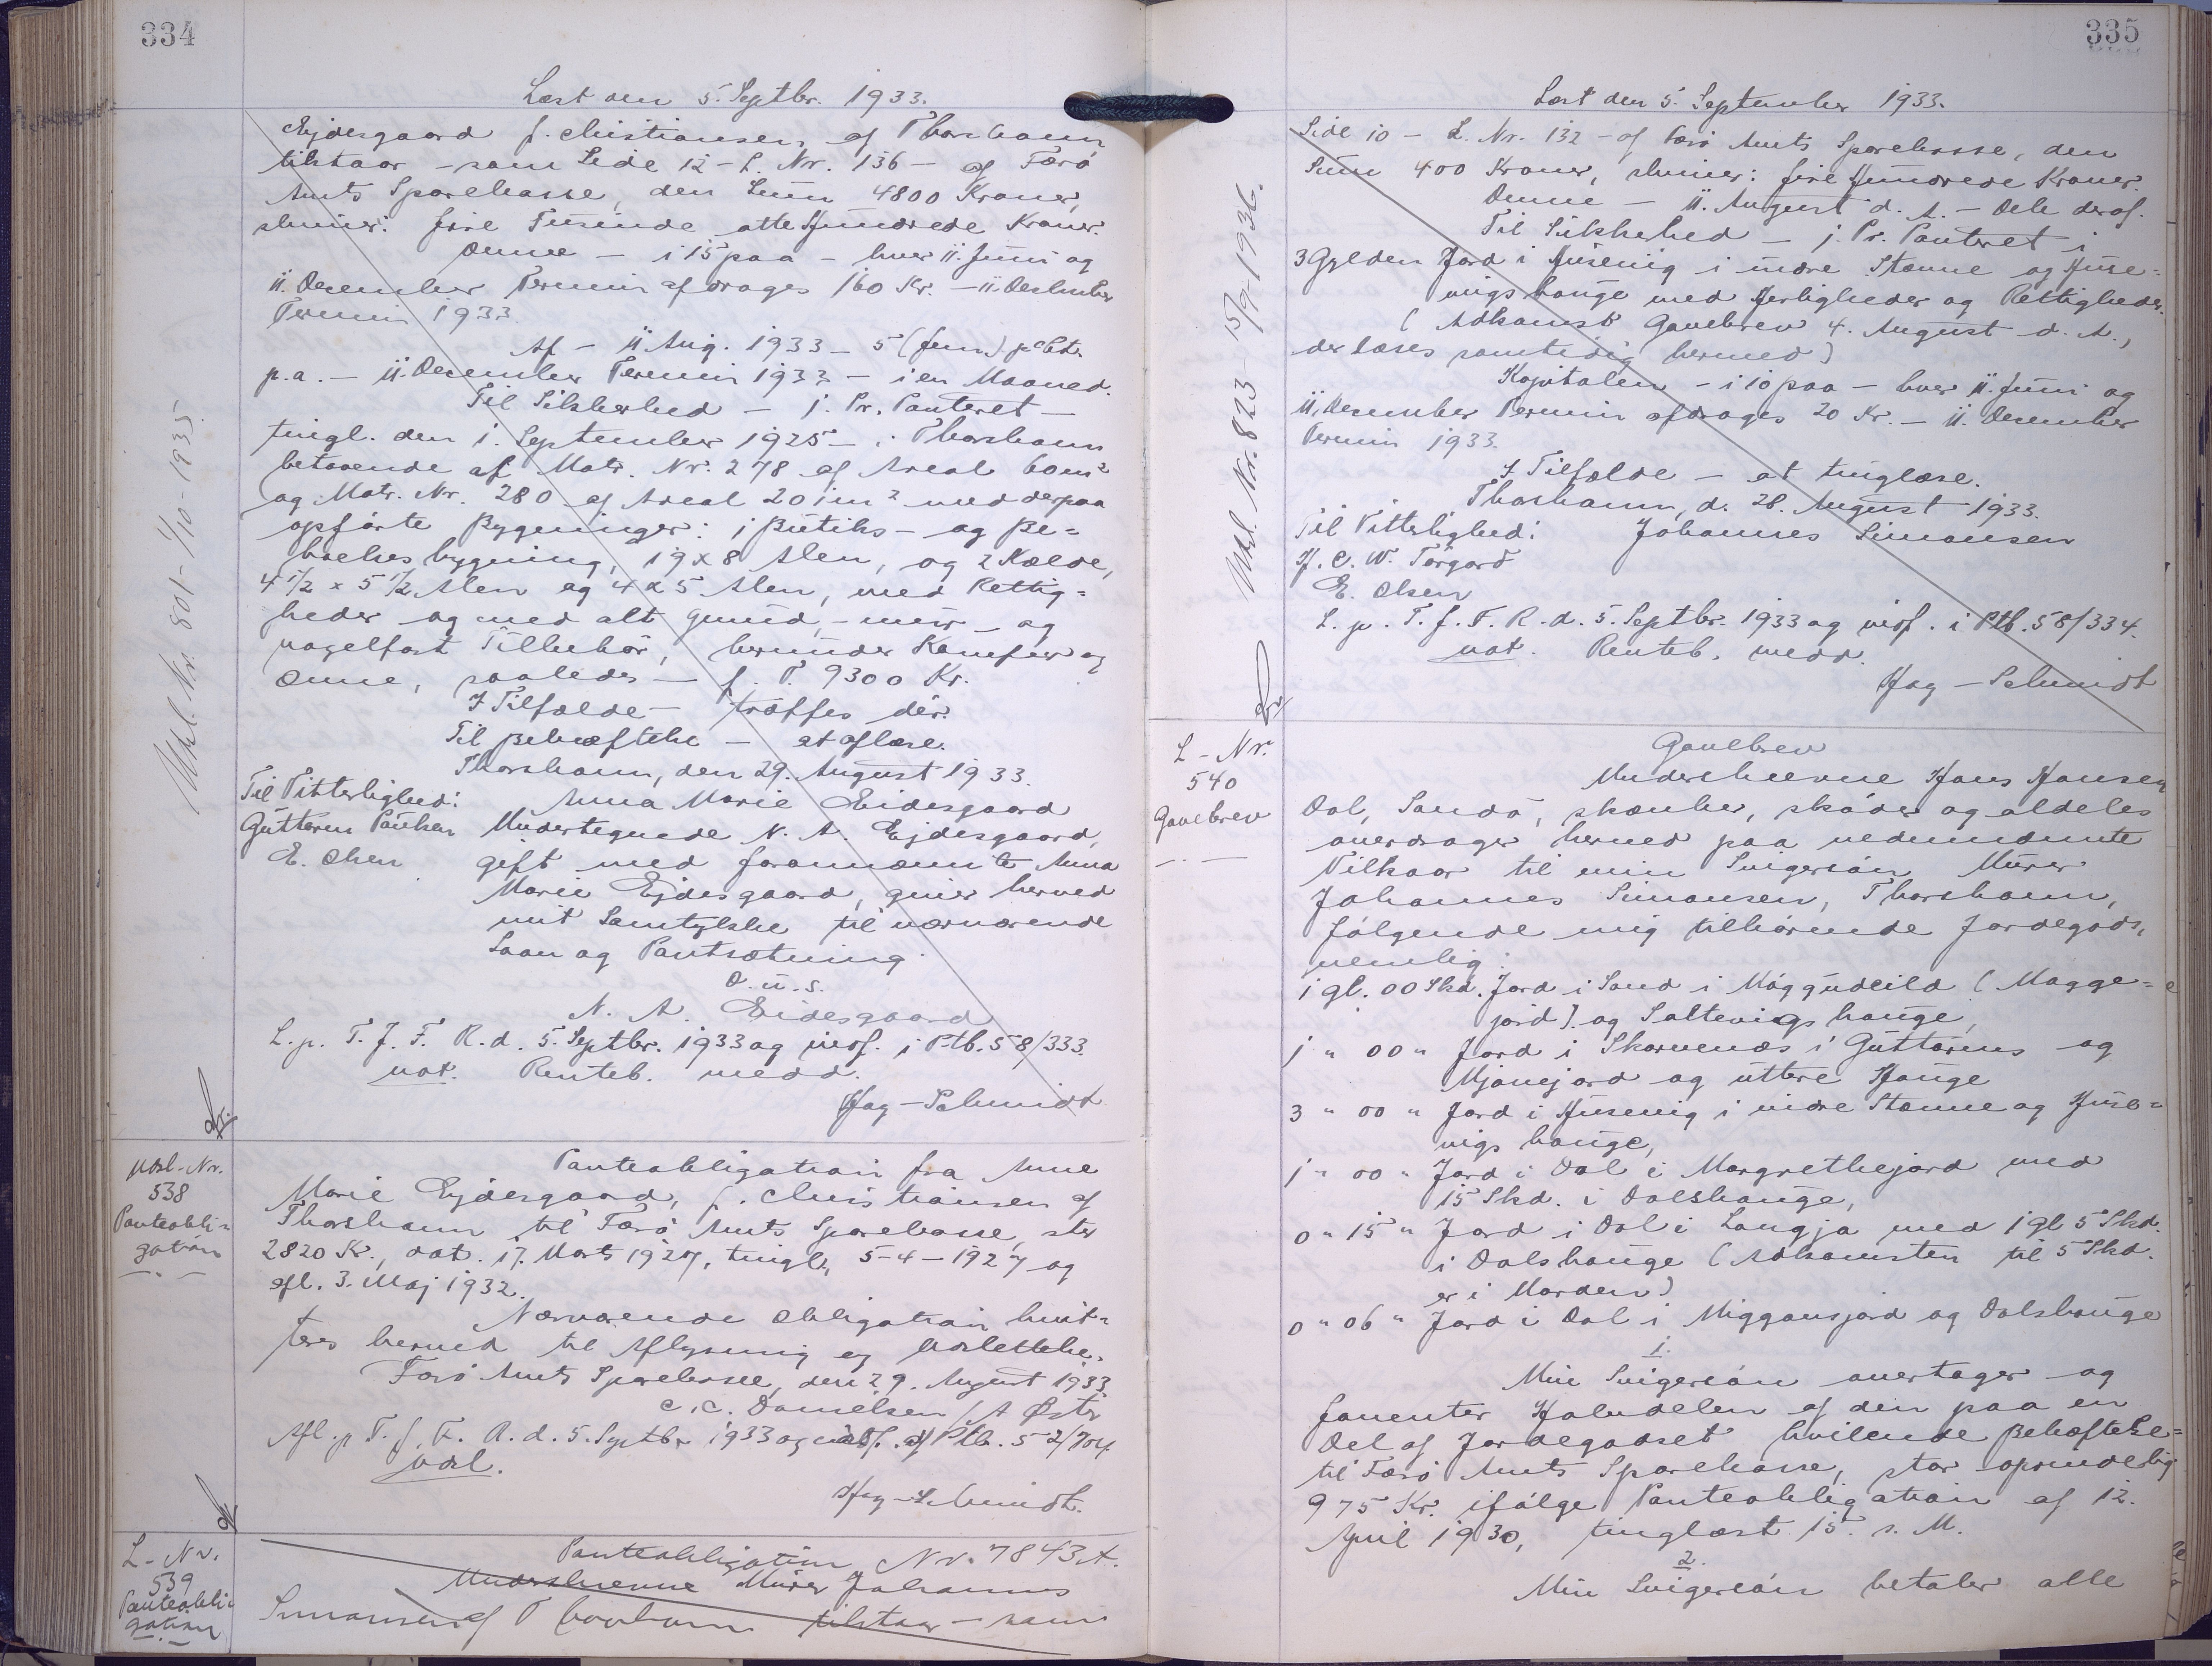 334
Læst den 5. Septbr. 1933.
Ejdesgaard f. Christiansen, af Thorshavn
tilstaar - som Side 12 - L. Nr. 136 - af Færö
Amts Sparekasse, den Sum 4800 Kroner,
skriver: fire Tusinde otte Hundrede Kroner.
Denne - i 15 paa - hver 11. Juni og
11. December Termin afdrages 160 Kr. - 11. December
Termin 1933.
Af - 11 Aug. 1933 - 5 (fem) pCt.
p.a. - 11. December Termin 1933 - i en Maaned.
Til Sikkerhed - j. Pr. Panteret -
tingl. den 1. September 1925 - i Thorshavn
bestaaende af Matr. Nr. 278 af Areal 60 m²
og Matr. Nr. 280 af Areal 201 m² med derpaa
opförte Bygninger: 1 Butiks- og Be=
boelsesbygning, 19 x 8 Alen, og 2 Kælde,
4 1/2 x 5 1/2 Alen og 4 x 5 Alen, med Rettig=
heder og med alt grund,- mur- og
nagelfast Tilbehör, herunder Komfur og
Ovne, saaledes - f. T. 9300 Kr.
I Tilfælde - træffes dér.
Til Bekræftelse - at aflæse.
Thorshavn, den 29. August 1933.
Til Vitterlighed: Anna Marie Eidesgaard
Guttorm Paulsen Undertegnede N. A. Ejdesgaard,
E. Olsen gift med forannævnte Anna
Marie Ejdesgaard, giver herved
mit Samtykke til nærværende
Laan og Pantsætning.
D.u.s.
N. A. Eidesgaard
L.p. T. f. F. R. d. 5. Septbr. 1933 og indf. i Ptb. 58/333.
not. Renteb. medd.
Hag-Schmidt
Udsl. Nr. 801 - 1/10-1935
Udsl-Nr.
538
Panteobli=
gation
Panteobligation fra Anne
Marie Ejdesgaard, f. Christiansen af
Thorshavn til Færö Amts Sparekasse, stor
2820 Kr., dat. 17. Marts 1927, tingl. 5-4-1927 og
afl. 3. Maj 1932.
Nærværende Obligation kvit=
teres herved til Aflysning og Udslettelse.
Færö Amts Sparekasse, den 29. August 1933.
C. C. Danielsen / A Øster
Afl. p T. f. F. R. d. 5. Septbr 1933 og Ptb. 52/704
udsl.
Hag-Schmidt.
L-Nr.
539
Panteobli=
gation
Panteobligation Nr. 7843 A.
Underskrevne Murer Johannes
Simonsen af Thorshavn tilstaar - som
335
Læst den 5. September 1933.
Side 10 - L. Nr. 132 - af Færö Amts Sparekasse, den
Sum 400 Kroner, skriver: fire Hundrede Kroner.
Denne - 11. August d. A. - Dele deraf.
Til Sikkerhed - j. Pr. Panteret i
3 Gylden Jord i Husevig i indre Stovne og Huse=
vigs hauge med Herligheder og Rettigheder.
(Adkomst Gavebrev 4. August d. A.,
der læses samtidig hermed)
Kapitalen - i 10 paa - hver 11. Juni og
11. December Termin afdrages 20 Kr. - 11. December
Termin 1933.
I Tilfælde - at tinglæse.
Thorshavn, d. 28. August 1933.
Til Vitterlighed: Johannes Simonsen
H. C. W. Tórgarð
E. Olsen
L. p. T. f. F. R. d. 5. Septbr. 1933 og indf. i Ptb. 58/334.
not. Renteb. medd.
Hag-Schmidt
Udsl. Nr. 823 - 15/9-1936.
L-Nr.
540
Gavebrev
Gavebrev
Underskrevne Hans Hansen
Dal, Sandö, skænker, sköder og aldeles
overdrager herved paa nedennævnte
Vilkaar til min Svigersön Murer
Johannes Simonsen, Thorshavn,
fölgende mig tilhörende Jordegods,
nemlig:
1 gl. 00 Skd. Jord i Sand i Möggudeild (Mogge=
jord) og Saltevigs hauge,
1 " 00 " Jord i Skarvenæs i Guttorms og
Mjönejord og uttere Hauge
3 " 00 " Jord i Husevig i indre Stovne og Huse=
vigs hauge,
1 " 00 " Jord i Dal i Margrethejord med
15 Skd. i Dalshauge,
0 " 15 " Jord i Dal i Langja med 1 gl 5 Skd.
i Dalshauge (Adkomsten til 5 Skd.
er i Orden)
0 " 06 " Jord i Dal i Miggansjord og Dalshauge
1.
Min Svigersön overtager og
forrenter Halvdelen af den paa en
Del af Jordegodset hvilende Behæftelse
til Færö Amts Sparekasse, stor oprindelig
975 Kr. ifölge Panteobligation af 12.
April 1930, tinglæst 15. s. M.
2.
Min Svigersön betaler alle